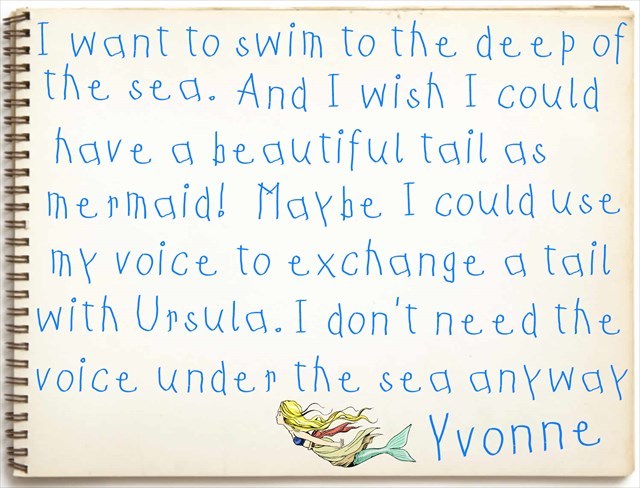 I want to swim to the deep of
the sea. And I wish I could
have a beautiful tail as
mermaid! Maybe I could use
my voice to exchange a tail
with Ursula. I don't need the
voice under the sea anyway
Yvonne